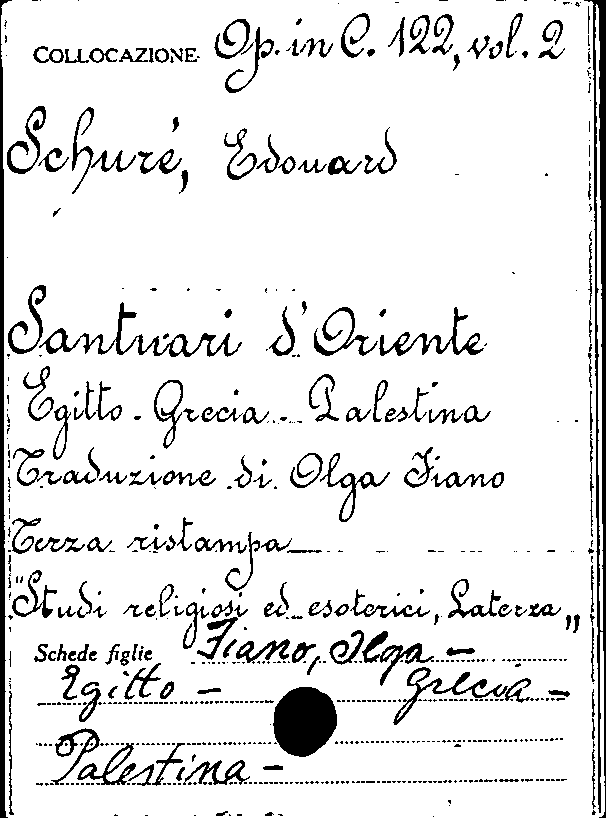 COLLOCAZIONE Op. in C. 122, vol. 2
Schuré, Edouard
Santuari d'Oriente
Egitto - Grecia - Palestina
Traduzione di Olga Fiano
Terza ristampa
"Studi religiosi ed esoterici, Laterza„
Schede figlie Fiano, Olga -
Egitto - Grecia -
Palestina -